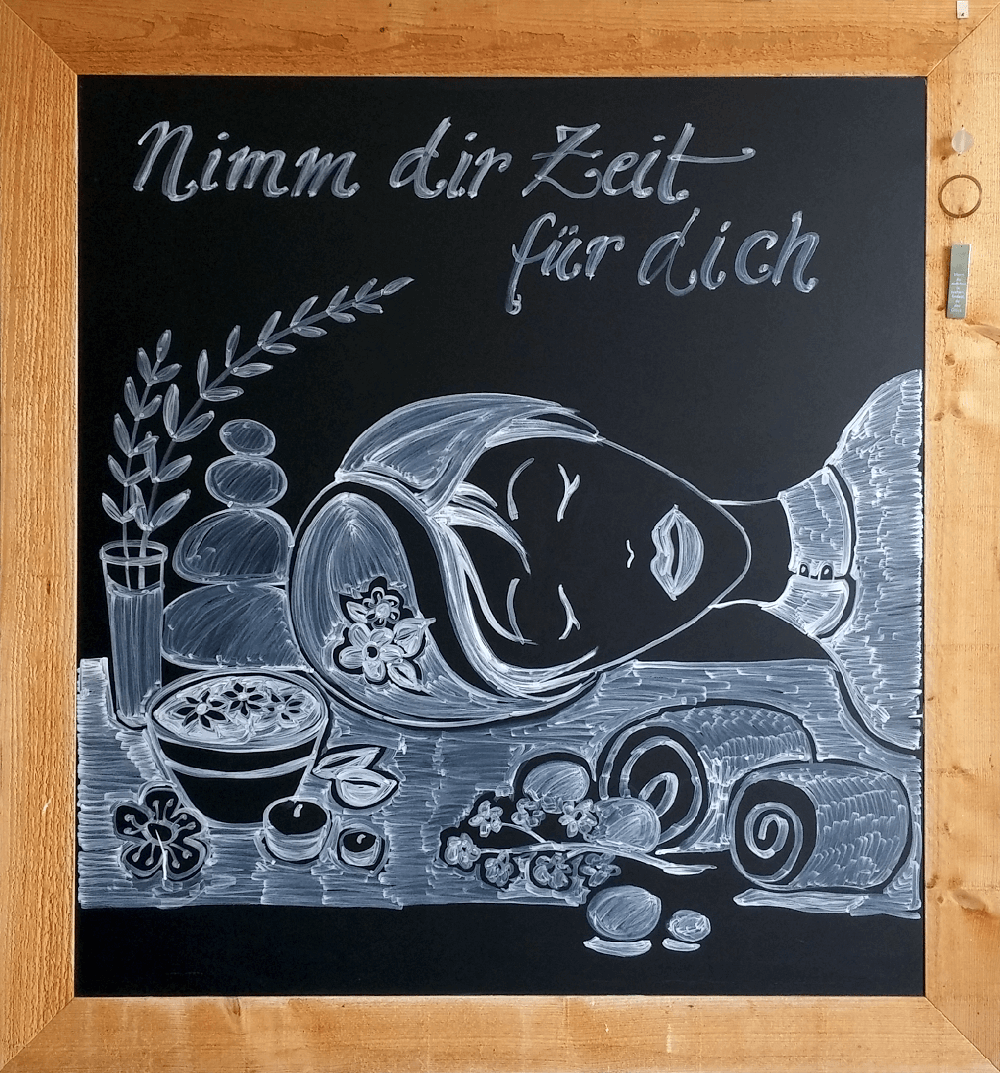 Nimm dir Zeit
für dich